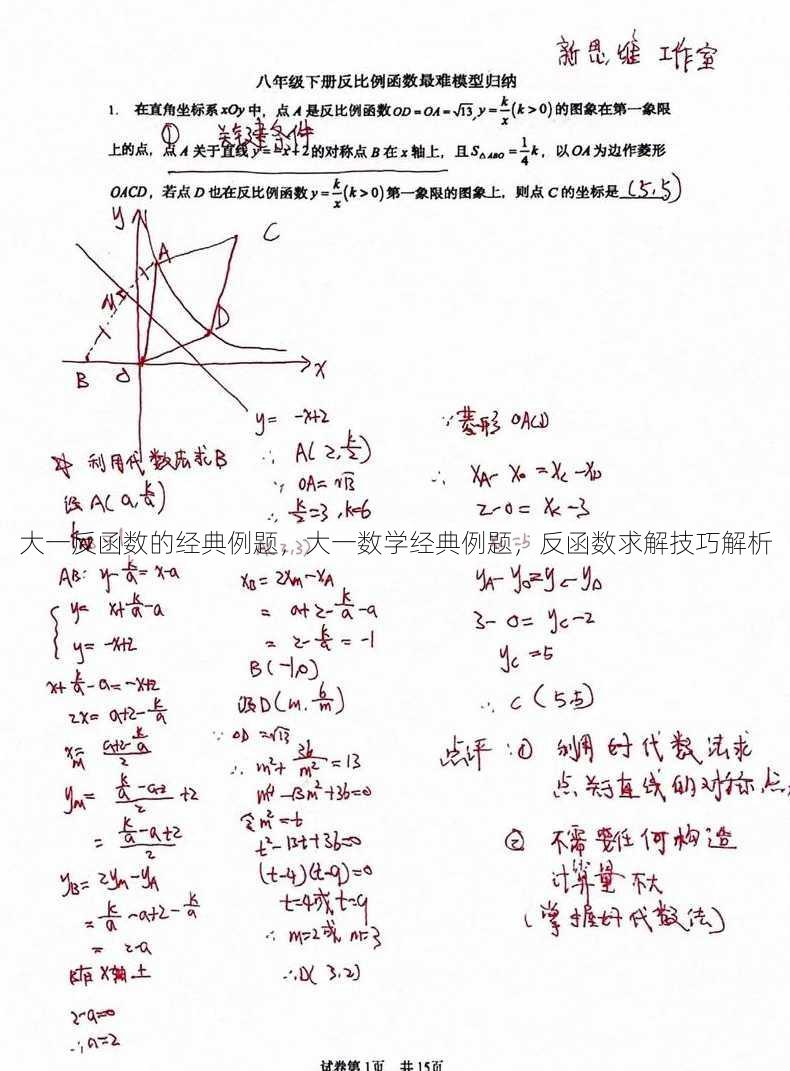 新思维 工作室
八年级下册反比例函数最难模型归纳
1. 在直角坐标系 xOy 中，点 A 是反比例函数 OD=OA=√13, y=k/x(k>0) 的图象在第一象限
① 关键条件
上的点，点 A 关于直线 y=-x+2 的对称点 B 在 x 轴上，且 S△ABO=1/4k，以 OA 为边作菱形
OACD，若点 D 也在反比例函数 y=k/x(k>0) 第一象限的图象上，则点 C 的坐标是 (5,5)
y
C
A
M
D
B
O
x
利用代数法求B
设 A(a, k/a)
AB: y-k/a=x-a
y=x+k/a-a
y=-x+2
x+k/a-a=-x+2
2x=a+2-k/a
xM=(a+2-k/a)/2
+2
=(k/a-a+2)/2
yB=2yM-yA
=k/a-a+2-k/a
=2-a
B在x轴上
2-a=0
∴a=2
y=-x+2
∴ A(2, k/2)
∵ OA=√13
∴ k/2=3, k=6
xB=2xM-xA
=a+2-k/a-a
=2-k/a=-1
B(-1,0)
设D(m, 6/m)
∵ OD=√13
∴ m²+36/m²=13
m⁴-13m²+36=0
令m²=t
t²-13t+36=0
(t-4)(t-9)=0
t=4或t=9
∴ m=2或m=3
∴D(3,2)
∵菱形OACD
∴ xA-xO=xC-xD
2-0=xC-3
大一反函数的经典例题，大一数学经典例题，反函数求解技巧解析
yA-yO=yC-yD
3-0=yC-2
yC=5
∴ C(5,5)
点评：① 利用好代数法求
点关于直线的对称点
② 不需要任何构造
计算量不大
(掌握好代数法)
试卷第1页 共15页